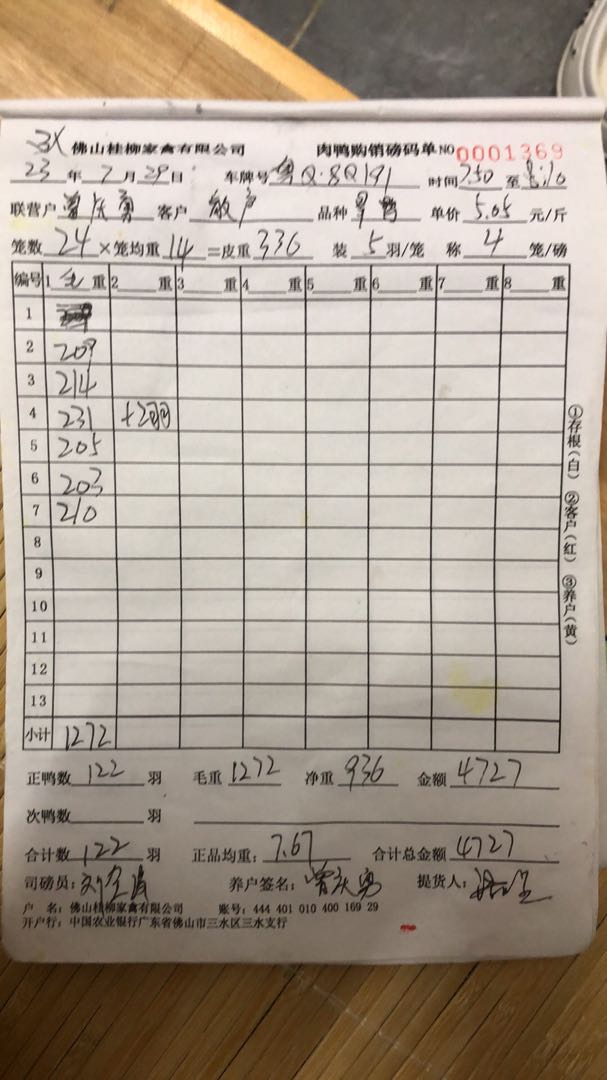 3X 佛山桂柳家禽有限公司 肉鸭购销磅码单 NO 0001369
23 年 7 月 29 日 车牌号 粤Q·8Q191 时间 7:50 至 8:10
联营户 曾庆勇 客户 散户 品种 单价 5.05 元/斤
笼数 24 ×笼均重 14 =皮重 336 装 5 羽/笼 称 4 笼/磅
编号 1 毛 重 2 重 3 重 4 重 5 重 6 重 7 重 8 重
1
2 209
3 214
4 231 +2羽
5 205
6 203
7 210
8
9
10
11
12
13
小计 1272
正鸭数 122 羽 毛重 1272 净重 936 金额 4727
次鸭数 羽
合计数 122 羽 正品均重: 7.67 合计总金额 4727
司磅员: 养户签名: 曾庆勇 提货人:
户 名: 佛山桂柳家禽有限公司 账号: 444 401 010 400 169 29
开户行: 中国农业银行广东省佛山市三水区三水支行
①存根(白) ②客户(红) ③养户(黄)